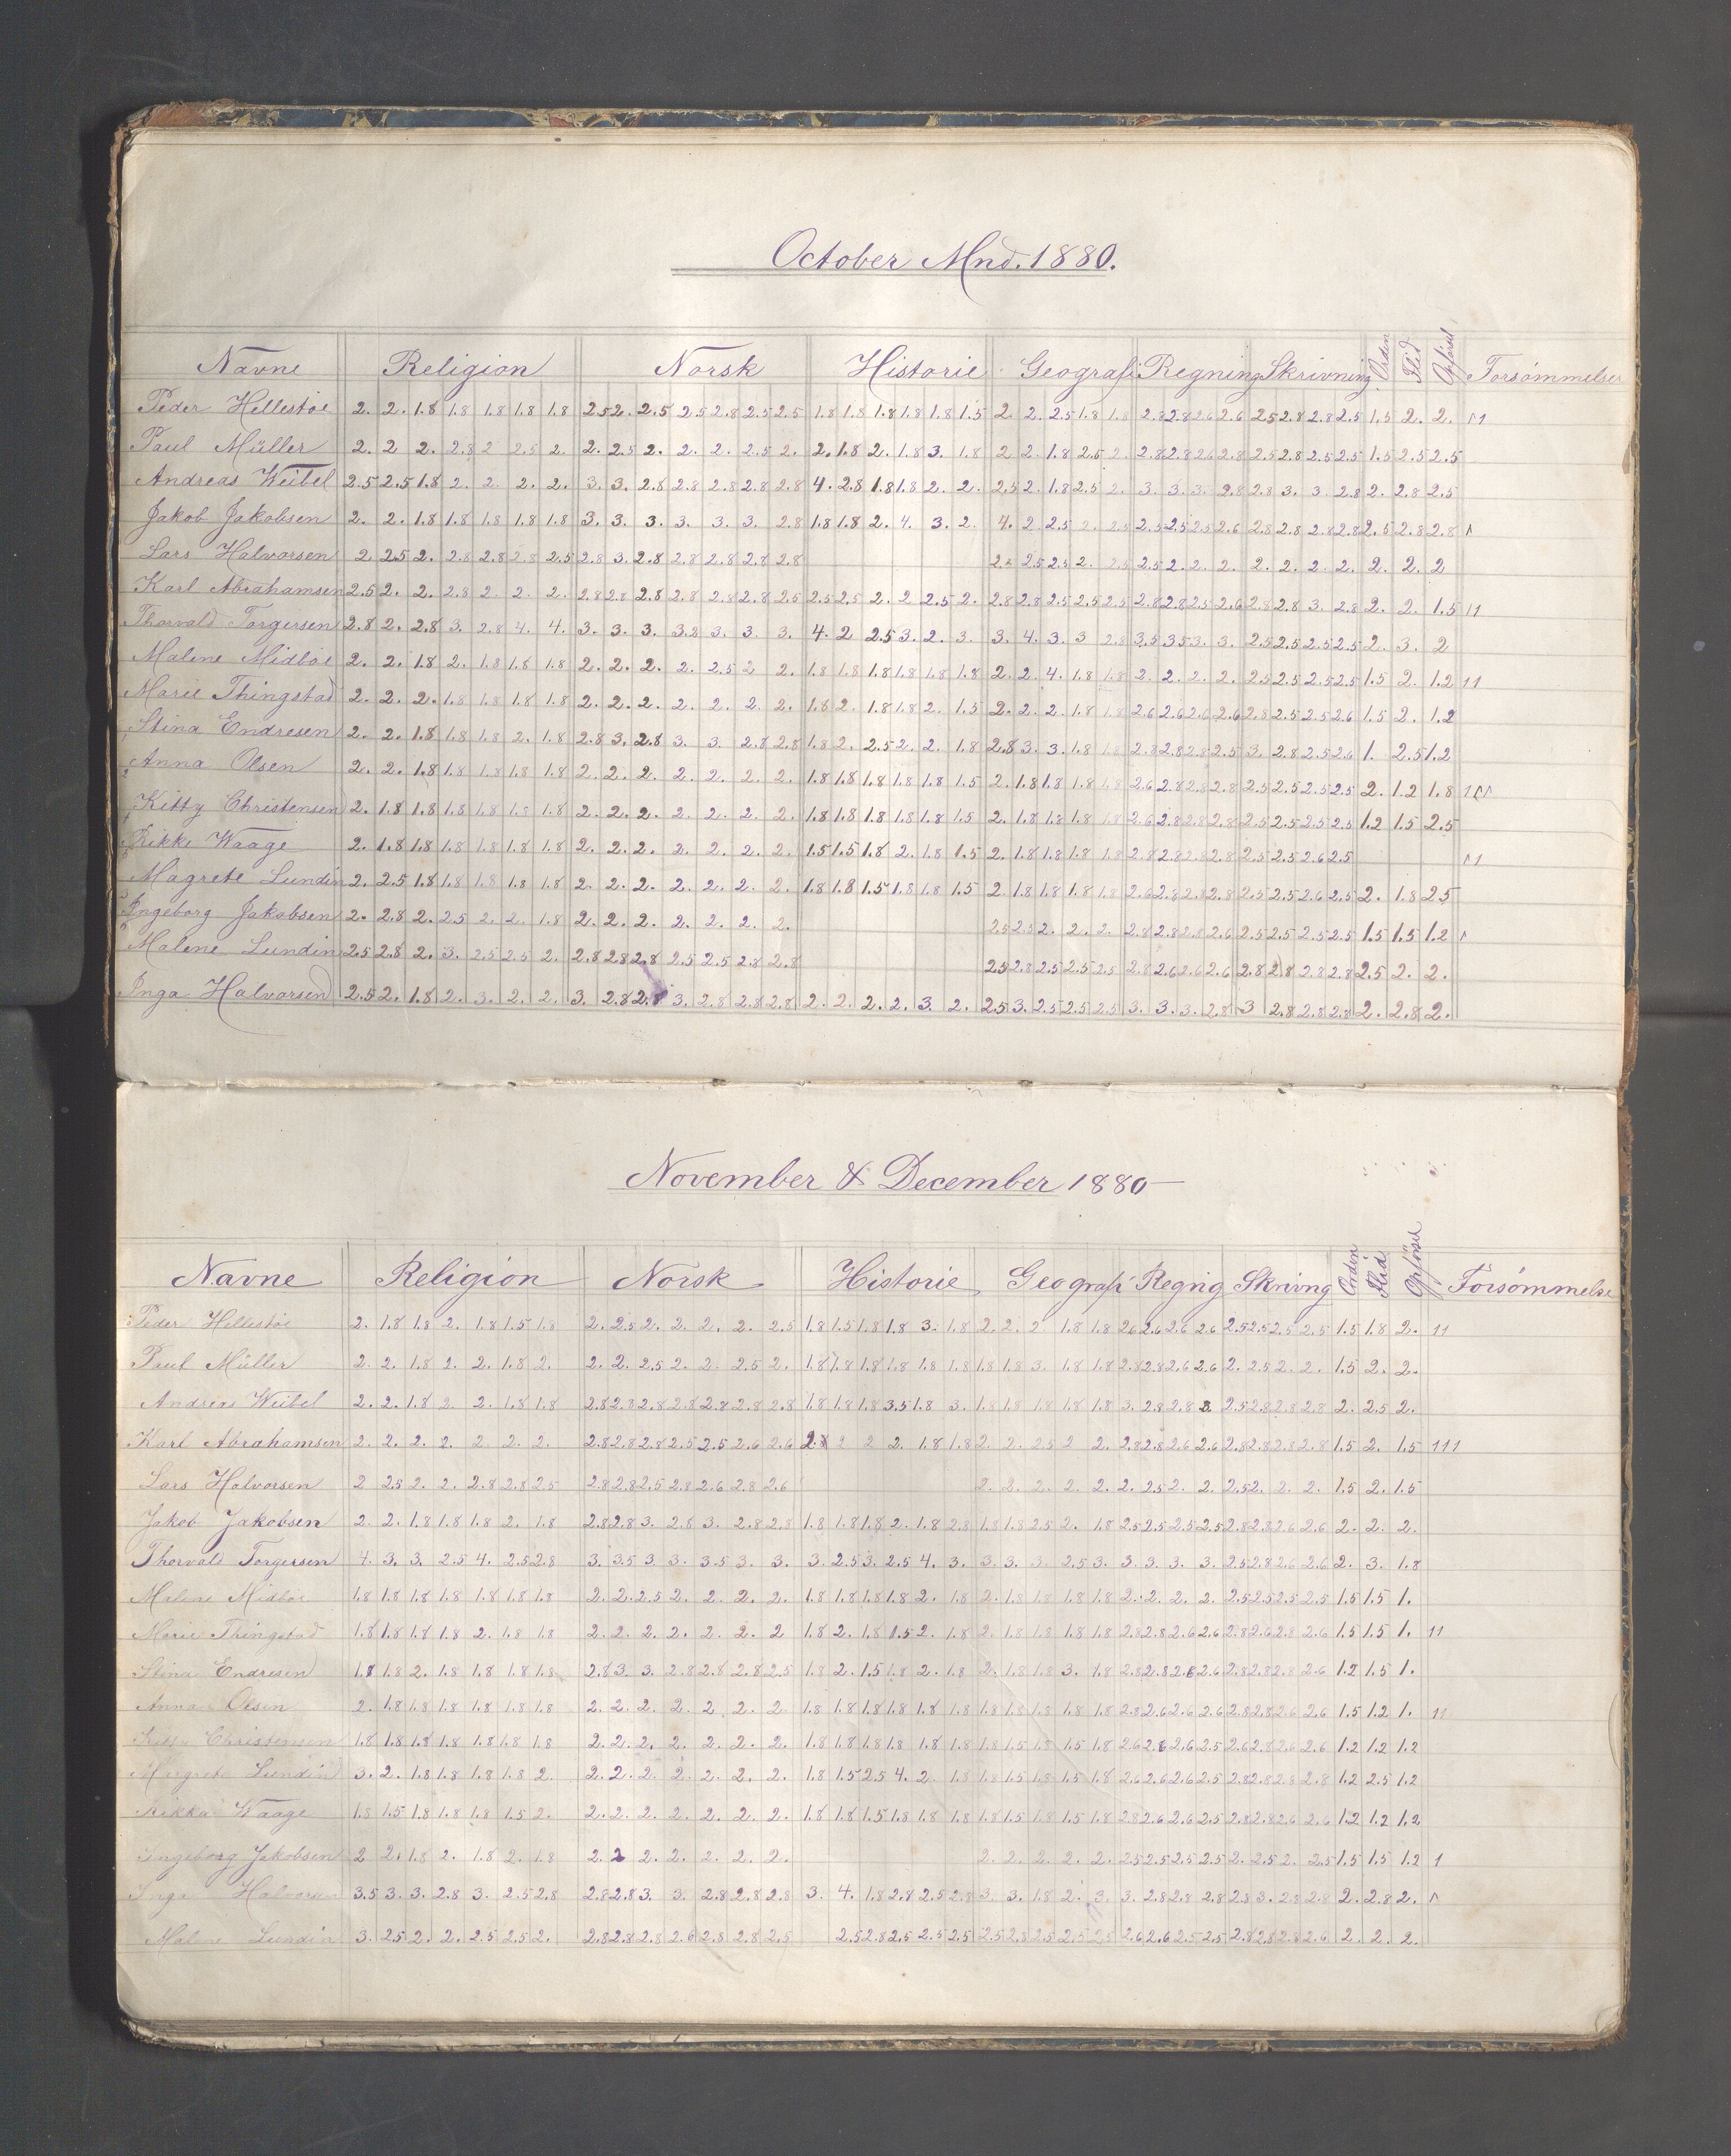 October Mnd. 1880.
Navne Religion Norsk Historie Geografi Regning Skrivning Orden Flid Opførsel Forsømmelser
Peder Hellestøe 2. 2. 1.8 1.8 1.8 1.8 1.8 2.5 2. 2.5 2.5 2.8 2.5 2.5 1.8 1.8 1.8 1.8 1.8 1.5 2. 2. 2.5 1.8 1.8 2.8 2.8 2.6 2.6 2.5 2.8 2.8 2.5 1.5 2. 2. 11
Paul Müller 2. 2. 2. 2.8 2 2.5 2. 2. 2.5 2. 2. 2. 2.5 2. 2. 1.8 2. 1.8 3. 1.8 2 2. 1.8 2.5 2. 2.8 2.8 2.6 2.8 2.5 2.8 2.5 2.5 1.5 2.5 2.5
Andreas Weibel 2.5 2.5 1.8 2. 2. 2. 2. 3. 3. 2.8 2.8 2.8 2.8 2.8 4. 2.8 1.8 1.8 2. 2. 2.5 2. 1.8 2.5 2. 3. 3. 3. 2.8 2.8 3. 3. 2.8 2. 2.8 2.5
Jakob Jakobsen 2. 2. 1.8 1.8 1.8 1.8 1.8 3. 3. 3. 3. 3. 3. 2.8 1.8 1.8 2. 4. 3. 2. 4. 2 2.5 2. 2.5 2.5 2.5 2.5 2.6 2.8 2.8 2.8 2.8 2.5 2.8 2.8 1
Lars Halvorsen 2 2.5 2. 2.8 2.8 2.8 2.5 2.8 3. 2.8 2.8 2.8 2.8 2.8 2.5 2.5 2. 2.5 2.5 2. 2. 2. 2. 2. 2. 2. 2. 2. 2
Karl Abrahamsen 2.5 2. 2. 2.8 2. 2. 2. 2.8 2.8 2.8 2.8 2.8 2.8 2.5 2.5 2.5 2. 2 2.5 2. 2.8 2.8 2.5 2.5 2.5 2.8 2.8 2.5 2.6 2.8 2.8 3. 2.8 2. 2. 1.5 11
Thorvald Torgersen 2.8 2. 2.8 3. 2.8 4. 4. 3. 3. 3. 3.2 3. 3. 3. 4. 2 2.5 3. 2. 3. 3. 4. 3. 3 2.8 3.5 3.5 3. 3. 2.5 2.5 2.5 2.5 2. 3. 2
Malene Midbøe 2. 2. 1.8 2. 1.8 1.8 1.8 2. 2. 2. 2. 2.5 2 2. 1.8 1.8 1.8 1.8 1.8 1.8 2. 2. 4. 1.8 1.8 2. 2. 2. 2. 2.5 2.5 2.5 2.5 1.5 2. 1.2 11
Marie Thingstad 2. 2. 2. 1.8 1.8 1.8 1.8 2. 2. 2. 2. 2. 2. 2. 1.8 2. 1.8 1.8 2. 1.5 2. 2. 2. 1.8 1.8 2.6 2.6 2.6 2.6 2.8 2.5 2.5 2.6 1.5 2. 1.2
Stina Endresen 2. 2. 1.8 1.8 1.8 2. 1.8 2.8 3. 2.8 3. 3. 2.8 2.8 1.8 2. 2.5 2. 2. 1.8 2.8 3. 3. 1.8 1.8 2.8 2.8 2.8 2.5 3. 2.8 2.5 2.6 1. 2.5 1.2
Anna Olsen 2. 2. 1.8 1.8 1.8 1.8 1.8 2. 2. 2. 2. 2. 2. 2. 1.8 1.8 1.8 1.8 1.8 1.5 2. 1.8 1.8 1.8 1.8 2.6 2.8 2.8 2.8 2.5 2.5 2.5 2.5 2. 1.2 1.8 111
Kitty Christensen 2. 1.8 1.8 1.8 1.8 1.8 1.8 2. 2. 2. 2. 2. 2. 2. 1.8 1.8 1.8 1.8 1.8 1.5 2. 1.8 1.8 1.8 1.8 2.6 2.8 2.8 2.8 2.5 2.5 2.5 2.5 1.2 1.5 2.5
Rikke Waage 2. 1.8 1.8 1.8 1.8 1.8 1.8 2. 2. 2. 2. 2. 2. 2. 1.5 1.5 1.8 2. 1.8 1.5 2. 1.8 1.8 1.8 1.8 2.8 2.8 2.8 2.8 2.5 2.5 2.6 2.5 11
Magrete Lundin 2. 2.5 1.8 1.8 1.8 1.8 1.8 2. 2. 2. 2. 2. 2. 2. 1.8 1.8 1.5 1.8 1.8 1.5 2. 1.8 1.8 1.8 1.8 2.6 2.8 2.8 2.8 2.5 2.5 2.6 2.5 2. 1.8 2.5
Ingeborg Jakobsen 2. 2.8 2. 2.5 2. 2. 1.8 2. 2. 2. 2. 2. 2. 2. 2.5 2.5 2. 2. 2. 2.8 2.8 2.8 2.6 2.5 2.5 2.5 2.5 1.5 1.5 1.2 1
Malene Lundin 2.5 2.8 2. 3. 2.5 2.5 2. 2.8 2.8 2.8 2.5 2.5 2.8 2.8 2.5 2.8 2.5 2.5 2.5 2.8 2.6 2.6 2.6 2.8 2.8 2.8 2.8 2.5 2. 2.
Inga Halvorsen 2.5 2. 1.8 2. 3. 2. 2. 3. 2.8 2.8 3. 2.8 2.8 2.8 2. 2. 2. 2. 3. 2. 2.5 3. 2.5 2.5 2.5 3. 3. 3. 2.8 3 2.8 2.8 2.8 2. 2.8 2.
November & December 1880
Navne Religion Norsk Historie Geografi Regnig Skrivng Orden Flid Opførsel Forsømmelse
Peder Hellestøe 2. 1.8 1.8 2. 1.8 1.5 1.8 2. 2.5 2. 2. 2. 2. 2.5 1.8 1.5 1.8 1.8 3. 1.8 2. 2. 2 1.8 1.8 2.6 2.6 2.6 2.6 2.5 2.5 2.5 2.5 1.5 1.8 2. 11
Paul Müller 2. 2. 1.8 2. 2. 1.8 2. 2. 2. 2.5 2. 2. 2.5 2. 1.8 1.8 1.8 1.8 1.8 1.8 1.8 1.8 3. 1.8 1.8 2.8 2.8 2.6 2.6 2. 2.5 2. 2. 1.5 2. 2.
Andreas Weibel 2. 2. 1.8 2. 2. 1.8 1.8 2.8 2.8 2.8 2.8 2.8 2.8 2.8 1.8 1.8 1.8 3.5 1.8 3. 1.8 1.8 1.8 1.8 1.8 3. 2.8 2.8 3 2.5 2.8 2.8 2.8 2. 2.5 2.
Karl Abrahamsen 2. 2. 2. 2. 2. 2. 2. 2.8 2.8 2.8 2.5 2.5 2.6 2.6 2. 2 2 2. 1.8 1.8 2. 2. 2.5 2 2. 2.8 2.8 2.6 2.6 2.8 2.8 2.8 2.8 1.5 2. 1.5 111
Lars Halvorsen 2 2.5 2. 2. 2.8 2.8 2.5 2.8 2.8 2.5 2.8 2.6 2.8 2.6 2. 2. 2. 2. 2. 2. 2.5 2. 2. 2.5 2. 2. 2. 1.5 2. 1.5
Jakob Jakobsen 2. 2. 1.8 1.8 1.8 2. 1.8 2.8 2.8 3. 2.8 3. 2.8 2.8 1.8 1.8 1.8 2. 1.8 2.8 1.8 1.8 2.5 2. 1.8 2.5 2.5 2.5 2.5 2.8 2.8 2.6 2.6 2. 2. 2.
Thorvald Torgersen 4. 3. 3. 2.5 4. 2.5 2.8 3. 3.5 3. 3. 3.5 3. 3. 3. 2.5 3. 2.5 4. 3. 3. 3. 3. 2.5 3. 3. 3. 3. 3. 2.5 2.8 2.6 2.6 2. 3. 1.8
Malene Midbøe 1.8 1.8 1.8 1.8 1.8 1.8 1.8 2. 2. 2.5 2. 2. 2. 2. 1.8 1.8 1.8 1.8 2. 1.8 2. 1.8 1.8 1.8 1.8 2. 2. 2. 2. 2.5 2.5 2.5 2.5 1.5 1.5 1.
Marie Thingstad 1.8 1.8 1.8 1.8 2. 1.8 1.8 2. 2. 2. 2. 2. 2. 2 1.8 2. 1.8 1.5 2. 1.8 2. 1.8 1.8 1.8 1.8 2.8 2.8 2.6 2.6 2.8 2.6 2.8 2.6 1.5 1.5 1. 11
Stina Endresen 1.8 1.8 2. 1.8 1.8 1.8 1.8 2.8 3. 3. 2.8 2.8 2.8 2.5 1.8 2. 1.5 1.8 2. 1.8 2. 1.8 1.8 3. 1.8 2.8 2.8 2.6 2.6 2.8 2.8 2.8 2.6 1.2 1.5 1.
Anna Olsen 2. 1.8 1.8 1.8 1.8 1.8 1.8 2. 2. 2. 2. 2. 2. 2. 1.8 1.8 1.8 1.8 1.8 1.8 1.8 1.8 1.8 1.8 1.8 2.8 2.6 2.6 2.6 2.8 2.8 2.6 2.6 1.5 1.2 1. 11
Kitty Christensen 1.8 1.8 1.8 1.8 1.8 1.8 1.8 2. 2. 2. 2. 2. 2. 2. 1.8 1.8 1.8 1.8 1.8 1.8 1.8 1.5 1.8 1.5 1.8 2.6 2.6 2.6 2.5 2.6 2.8 2.6 2.6 1.2 1.2 1.2
Margrete Lundin 3. 2. 1.8 1.8 1.8 1.8 2. 2. 2. 2. 2. 2. 2. 2. 1.8 1.5 2.5 4. 2. 1.8 1.8 1.5 1.8 1.5 1.8 2.6 2.6 2.6 2.5 2.8 2.8 2.8 2.8 1.2 2.5 1.2
Rikka Waage 1.8 1.5 1.8 1.8 1.8 1.5 2. 2. 2. 2. 2. 2. 2. 2. 1.8 1.8 1.5 1.8 1.8 1.8 1.8 1.5 1.8 1.5 1.8 2.8 2.6 2.6 2.5 2.8 2.8 2.6 2.6 1.2 1.2 1.2
Ingeborg Jakobsen 2 2. 1.8 2. 1.8 2. 1.8 2. 2 2. 2. 2. 2. 2. 2. 2. 2. 2. 2. 2.5 2.5 2.5 2.5 2. 2.5 2. 2.5 1.5 1.5 1.2 1
Inga Halvorsen 3.5 3. 3. 2.8 3. 2.5 2.8 2.8 2.8 3. 3. 2.8 2.8 2.8 3. 4. 1.8 2.8 2.5 2.8 3. 3. 1.8 2. 3. 3. 2.8 2.8 2.8 2.8 3. 2.8 2.8 2. 2.8 2. 1
Malene Lundin 3. 2.5 2. 2. 2.5 2.5 2. 2.8 2.8 2.8 2.6 2.8 2.8 2.5 2.5 2.8 2.5 2.5 2.5 2.5 2.8 2.5 2.5 2.5 2.6 2.6 2.5 2.5 2.8 2.8 2.8 2.6 2. 2. 2.